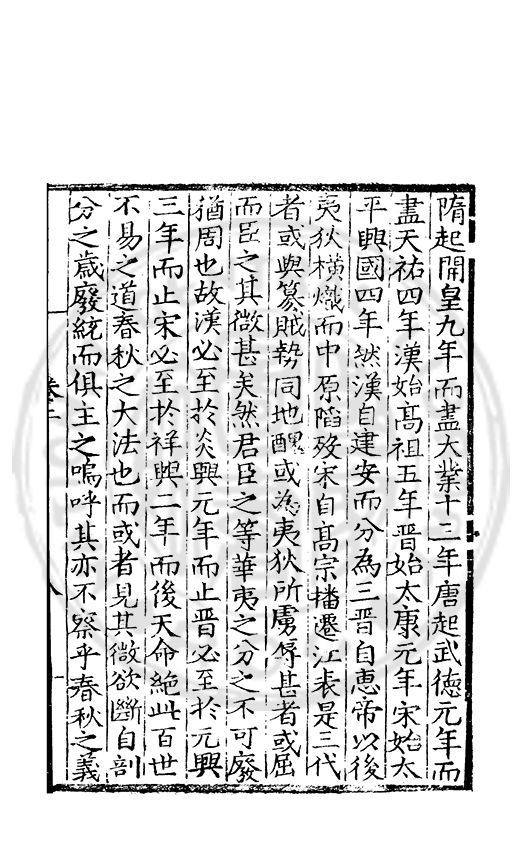 隋起開皇九年而盡大業十三年唐起武德元年而
盡天祐四年漢始髙祖五年晋始太康元年宋始太
平興國四年然漢自建安而分為三晋自恵帝以後
夷狄横熾而中原陷殁宋自髙宗播遷江表是三代
者或與篡賊勢同地醜或為夷狄所虜辱甚者或屈
而臣之其微甚矣然君臣之等華夷之分之不可廢
猶周也故漢必至於炎興元年而止晋必至於元興
三年而止宋必至於祥興二年而後天命絶此百世
不易之道春秋之大法也而或者見其微欲斷自剖
分之歳廢統而俱主之嗚呼其亦不察乎春秋之義
卷二
八